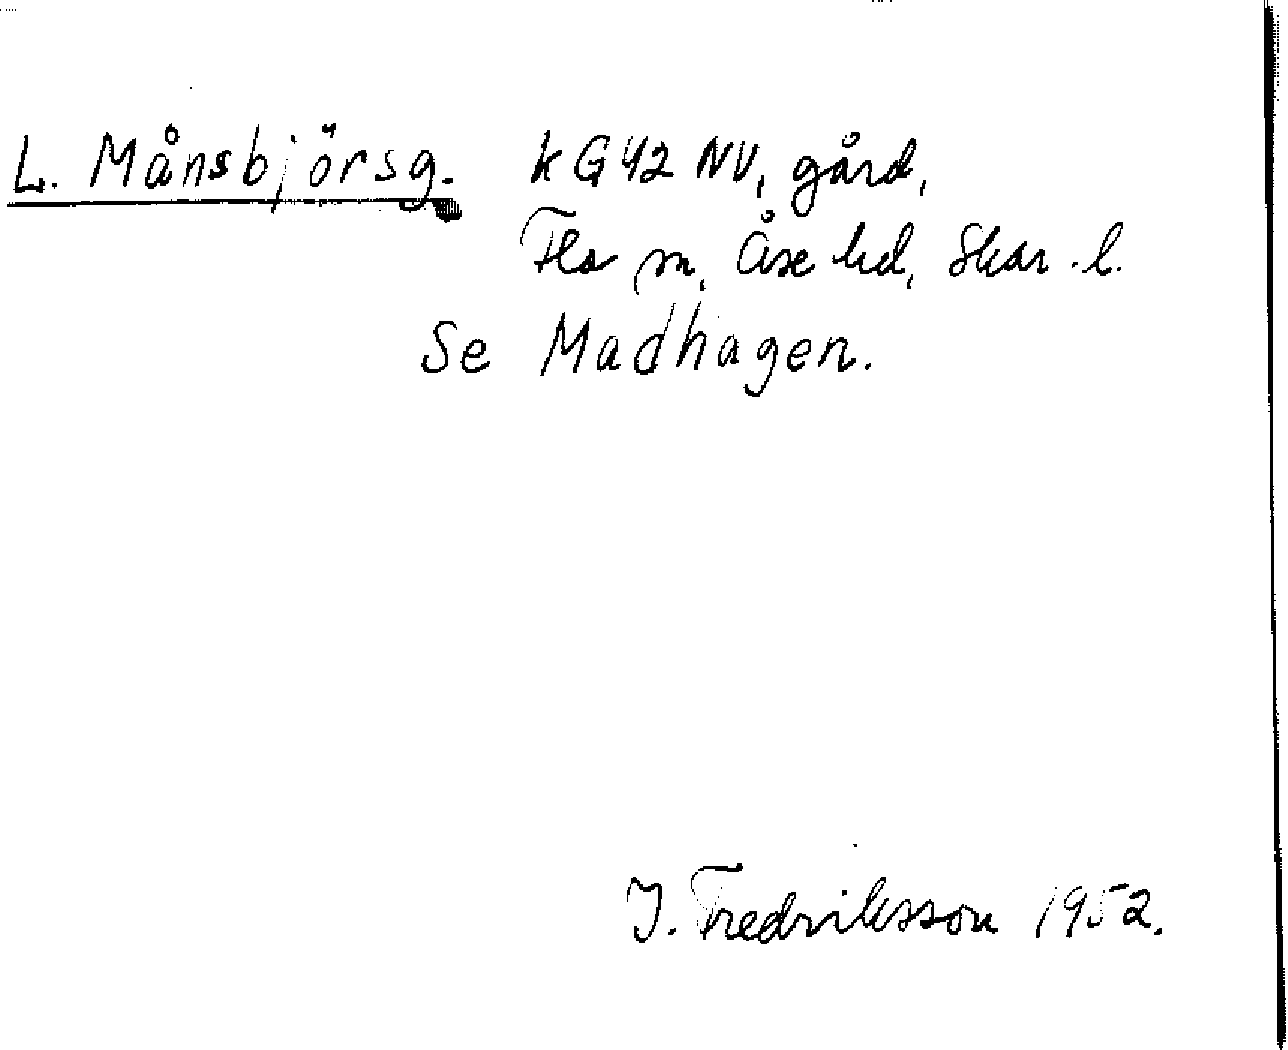 L. Månsbjörsg. kG42 NV, gård,
Flo sn, Åse hd, Skar. l.
Se Madhagen.
J. Fredriksson 1952.